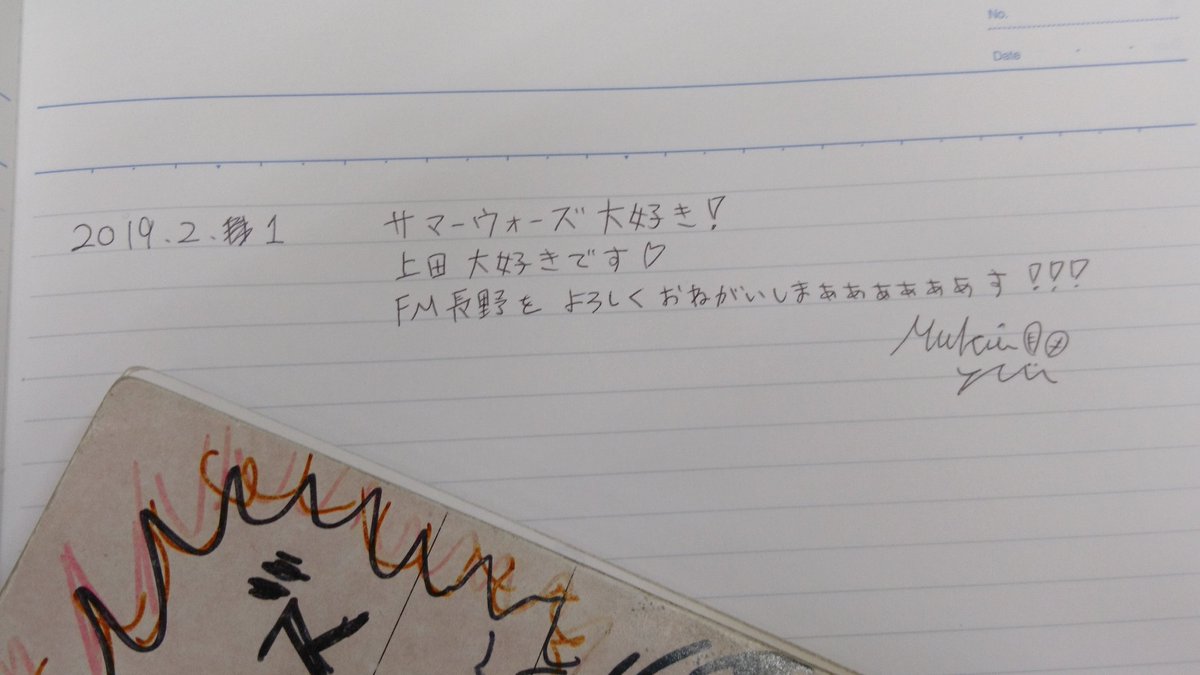 No.
Date
2019.2.1
サマーウォーズ大好き!
上田大好きです♡
FM長野をよろしくおねがいしまぁぁぁぁぁぁす!!!
Mukai